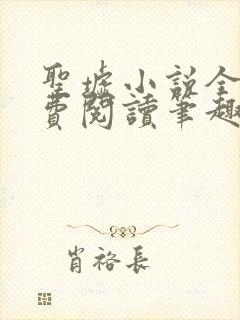 聖墟小說全
費閱讀筆趣
肖裕長